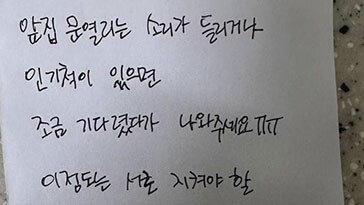 앞집 문열리는 소리가 들리거나
인기척이 있으면
조금 기다렸다가 나와주세요ㅠㅠ
이정도는 서로 지켜야 할